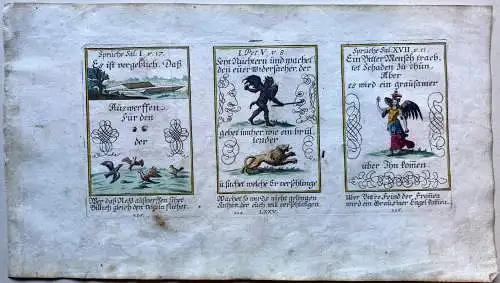 Sprüche Sal. I. v. 17.
Es ist vergeblich. Daß
Auswerffen
Für den
der
Wer das Netz auswerffen sihet
Billich gleich den Vögeln fliehet.
I. Pet. V. v. 8.
Seyt Nüchtern und wachet
den euer Widersacher, der
gehet umher, wie ein brül
lender
u. suchet welche Er verschlinge
Wachet so wirds nicht gelingen
LXXV.
Sprüche Sal. XVII. v. 11.
Ein Bitter Mensch trach,
tet Schaden zu thun,
Aber
es wird ein grausamer
über Ihn komen
wird ein Grausamer Engel komen.